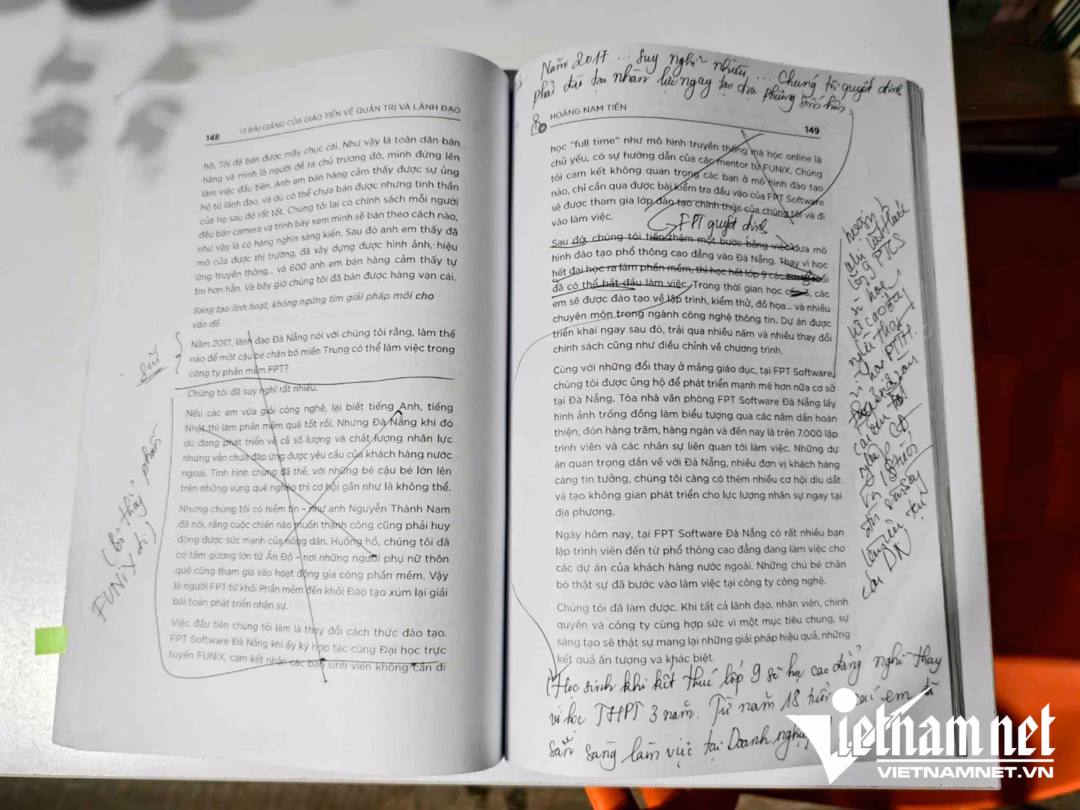 148 13 BÀI GIẢNG CỦA GIÁO TIẾN VỀ QUẢN TRỊ VÀ LÃNH ĐẠO
hộ. Tôi đã bán được mấy chục cái. Như vậy là toàn dân bán
hàng và mình là người đề ra chủ trương đó, mình đứng lên
làm việc đầu tiên. Anh em bán hàng cảm thấy được sự ủng
hộ từ lãnh đạo, và dù có thể chưa bán được nhưng tinh thần
của họ sau đó rất tốt. Chúng tôi lại có chính sách mỗi người
đều bán camera và trình bày xem mình sẽ bán theo cách nào,
như vậy là có hàng nghìn sáng kiến. Sau đó anh em thấy đã
mở cửa được thị trường, đã xây dựng được hình ảnh, hiệu
ứng truyền thông... và 600 anh em bán hàng cảm thấy tự
tin hơn hẳn. Và bây giờ chúng tôi đã bán được hàng vạn cái.
Sáng tạo linh hoạt, không ngừng tìm giải pháp mới cho
vấn đề
Năm 2017, lãnh đạo Đà Nẵng nói với chúng tôi rằng, làm thế
nào để một cậu bé chăn bò miền Trung có thể làm việc trong
công ty phần mềm FPT?
Chúng tôi đã suy nghĩ rất nhiều.
Nếu các em vừa giỏi công nghệ, lại biết tiếng Anh, tiếng
Nhật thì làm phần mềm quá tốt rồi. Nhưng Đà Nẵng khi đó
dù đang phát triển về cả số lượng và chất lượng nhân lực
nhưng vẫn chưa đáp ứng được yêu cầu của khách hàng nước
ngoài. Tình hình chung đã thế, với những bé cậu bé lớn lên
trên những vùng quê nghèo thì cơ hội gần như là không thể.
Nhưng chúng tôi có niềm tin - như anh Nguyễn Thành Nam
đã nói, rằng cuộc chiến nào muốn thành công cũng phải huy
động được sức mạnh của nông dân. Huống hồ, chúng tôi đã
có tấm gương lớn từ Ấn Độ - nơi những người phụ nữ thôn
quê cũng tham gia vào hoạt động gia công phần mềm. Vậy
là người FPT từ khối Phần mềm đến khối Đào tạo xúm lại giải
bài toán phát triển nhân sự.
Việc đầu tiên chúng tôi làm là thay đổi cách thức đào tạo.
FPT Software Đà Nẵng khi ấy ký hợp tác cùng Đại học trực
tuyến FUNiX, cam kết nhận các bạn sinh viên không cần đi
(Bỏ thay phần
FUNiX đi)
Năm 2017 ... Suy nghĩ nhiều ... Chúng tôi quyết định
phải đào tạo nhân lực ngay tại địa phương
HOÀNG NAM TIẾN 149
học “full time” như mô hình truyền thống mà học online là
chủ yếu, có sự hướng dẫn của các mentor từ FUNiX. Chúng
tôi cam kết không quan trọng các bạn ở mô hình đào tạo
nào, chỉ cần qua được bài kiểm tra đầu vào của FPT Software
sẽ được tham gia lớp đào tạo chính thức của chúng tôi và đi
vào làm việc.
FPT quyết định
Sau đó, chúng tôi tiến thêm một bước bằng việc đưa mô
hình đào tạo phổ thông cao đẳng vào Đà Nẵng. Thay vì học
hết đại học ra làm phần mềm, thì học hết lớp 9 các
đã có thể bắt đầu làm việc. Trong thời gian học các
em sẽ được đào tạo về lập trình, kiểm thử, đồ họa... và nhiều
chuyên môn trong ngành công nghệ thông tin. Dự án được
triển khai ngay sau đó, trải qua nhiều năm và nhiều thay đổi
chính sách cũng như điều chỉnh về chương trình.
Cùng với những đổi thay ở mảng giáo dục, tại FPT Software,
chúng tôi được ủng hộ để phát triển mạnh mẽ hơn nữa cơ sở
tại Đà Nẵng. Tòa nhà văn phòng FPT Software Đà Nẵng lấy
hình ảnh trống đồng làm biểu tượng qua các năm dần hoàn
thiện, đón hàng trăm, hàng ngàn và đến nay là trên 7.000 lập
trình viên và các nhân sự liên quan tới làm việc. Những dự
án quan trọng dần về với Đà Nẵng, nhiều đơn vị khách hàng
càng tin tưởng, chúng tôi càng có thêm nhiều cơ hội dìu dắt
và tạo không gian phát triển cho lực lượng nhân sự ngay tại
địa phương.
Ngày hôm nay, tại FPT Software Đà Nẵng có rất nhiều bạn
lập trình viên đến từ phổ thông cao đẳng đang làm việc cho
các dự án của khách hàng nước ngoài. Những chú bé chăn
bò thật sự đã bước vào làm việc tại công ty công nghệ.
Chúng tôi đã làm được. Khi tất cả lãnh đạo, nhân viên, chính
quyền và công ty cùng hợp sức vì một mục tiêu chung, sự
sáng tạo sẽ thật sự mang lại những giải pháp hiệu quả, những
kết quả ấn tượng và khác biệt.
(Học sinh khi kết thúc lớp 9 sẽ học cao đẳng nghề thay
vì học THPT 3 năm. Từ năm 18 tuổi các em đã
sẵn sàng làm việc tại Doanh nghiệp
Vietnamnet
VIETNAMNET.VN